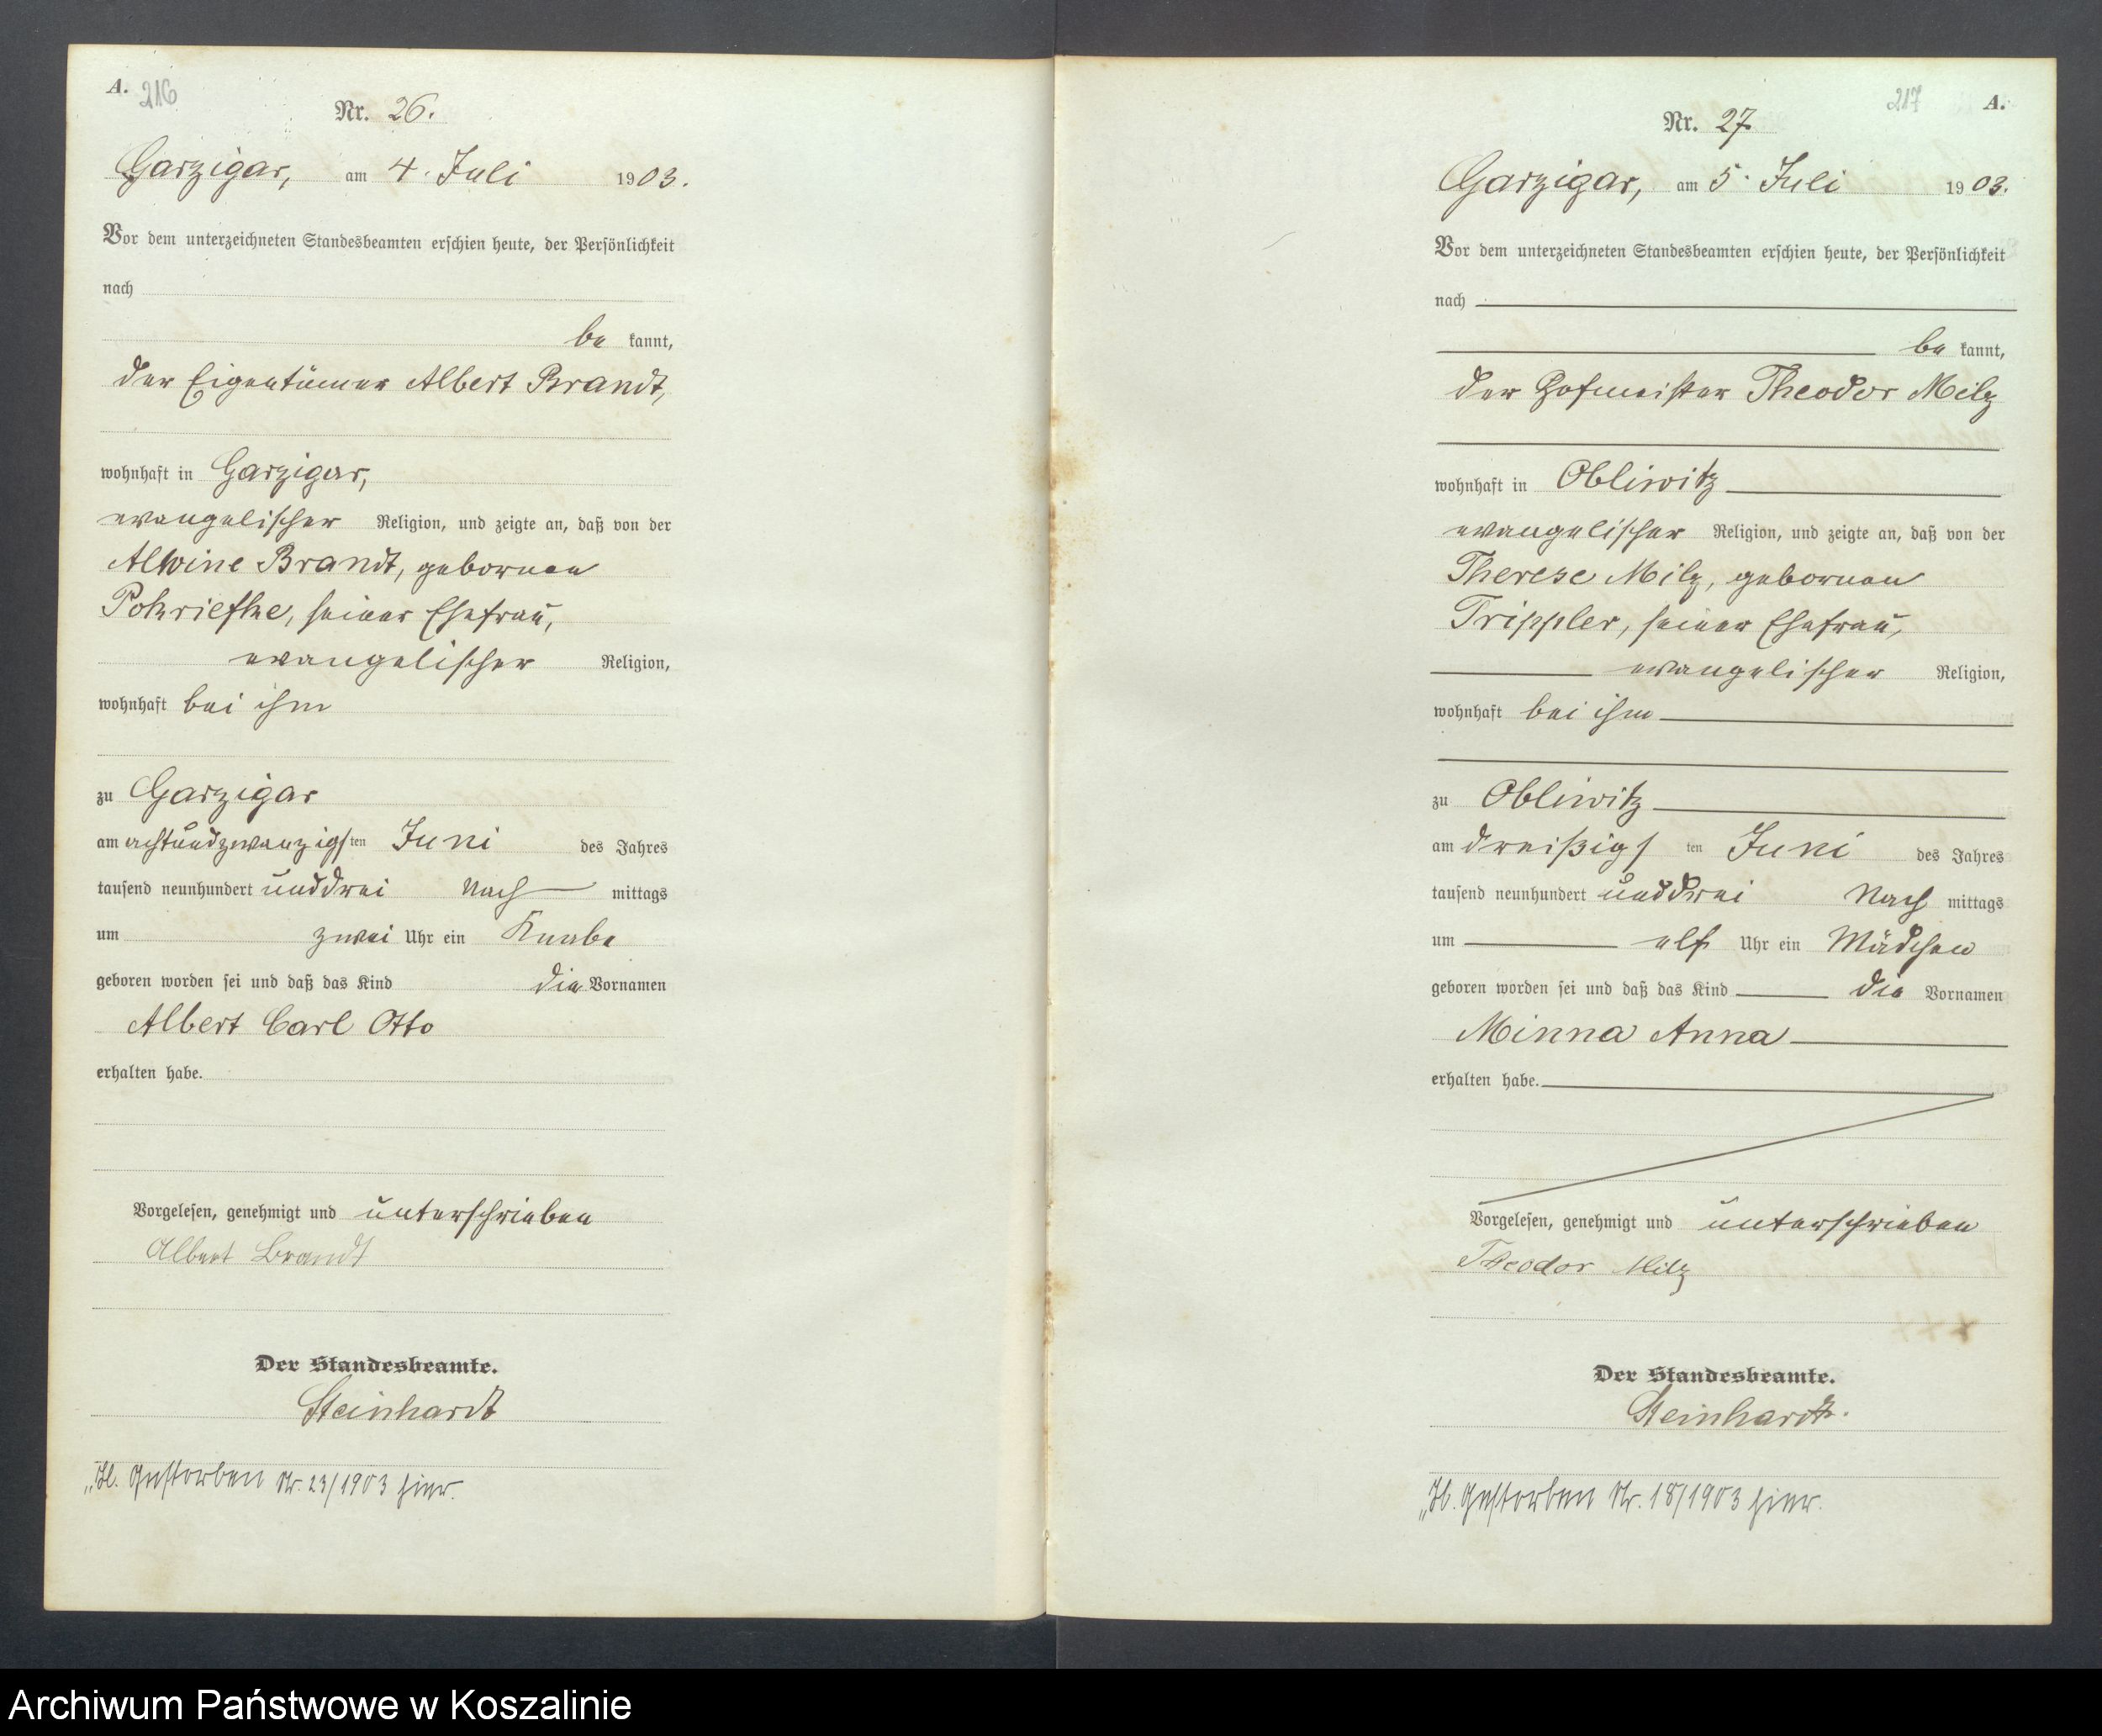 A. 216
Nr. 26.
Garzigar, am 4. Juli 1903.
Vor dem unterzeichneten Standesbeamten erschien heute, der Persönlichkeit
nach
be kannt,
der Eigentümer Albert Brandt,
wohnhaft in Garzigar,
evangelischer Religion, und zeigte an, daß von der
Alwine Brandt, geborenen
Pokriefke, seiner Ehefrau,
evangelischer Religion,
wohnhaft bei ihm
zu Garzigar
am achtundzwanzigsten Juni des Jahres
tausend neunhundert unddrei Nach mittags
um zwei Uhr ein Knabe
geboren worden sei und daß das Kind die Vornamen
Albert Carl Otto
erhalten habe.
Vorgelesen, genehmigt und unterschrieben
Albert Brandt
Der Standesbeamte.
Steinhardt
Gestorben Nr. 23/1903 hier.
217 A.
Nr. 27
Garzigar, am 5. Juli 1903.
Vor dem unterzeichneten Standesbeamten erschien heute, der Persönlichkeit
nach
be kannt,
der Hofmeister Theodor Milz
wohnhaft in Obliwitz
evangelischer Religion, und zeigte an, daß von der
Therese Milz, geborenen
Trippler, seiner Ehefrau,
evangelischer Religion,
wohnhaft bei ihm
zu Obliwitz
am dreißigsten Juni des Jahres
tausend neunhundert unddrei Nach mittags
um elf Uhr ein Mädchen
geboren worden sei und daß das Kind die Vornamen
Minna Anna
erhalten habe.
Vorgelesen, genehmigt und unterschrieben
Theodor Milz
Der Standesbeamte.
Steinhardt.
Gestorben Nr. 18/1903 hier.
Archiwum Państwowe w Koszalinie